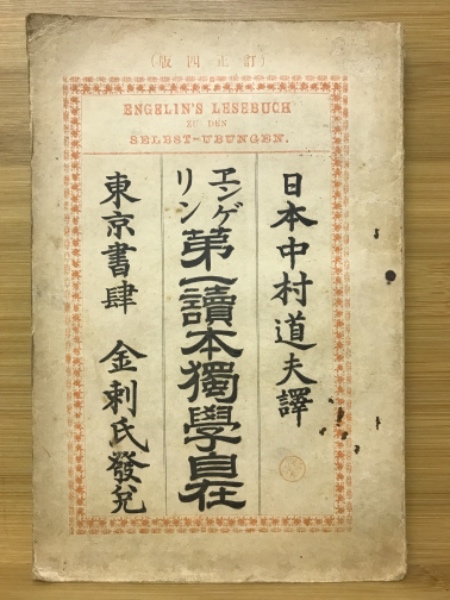 (訂正四版)
ENGELIN'S LESEBUCH
ZU DEN
SELBST-UBUNGEN.
日本中村道夫譯
エンゲリン第一讀本獨學自在
東京書肆 金刺氏發兌